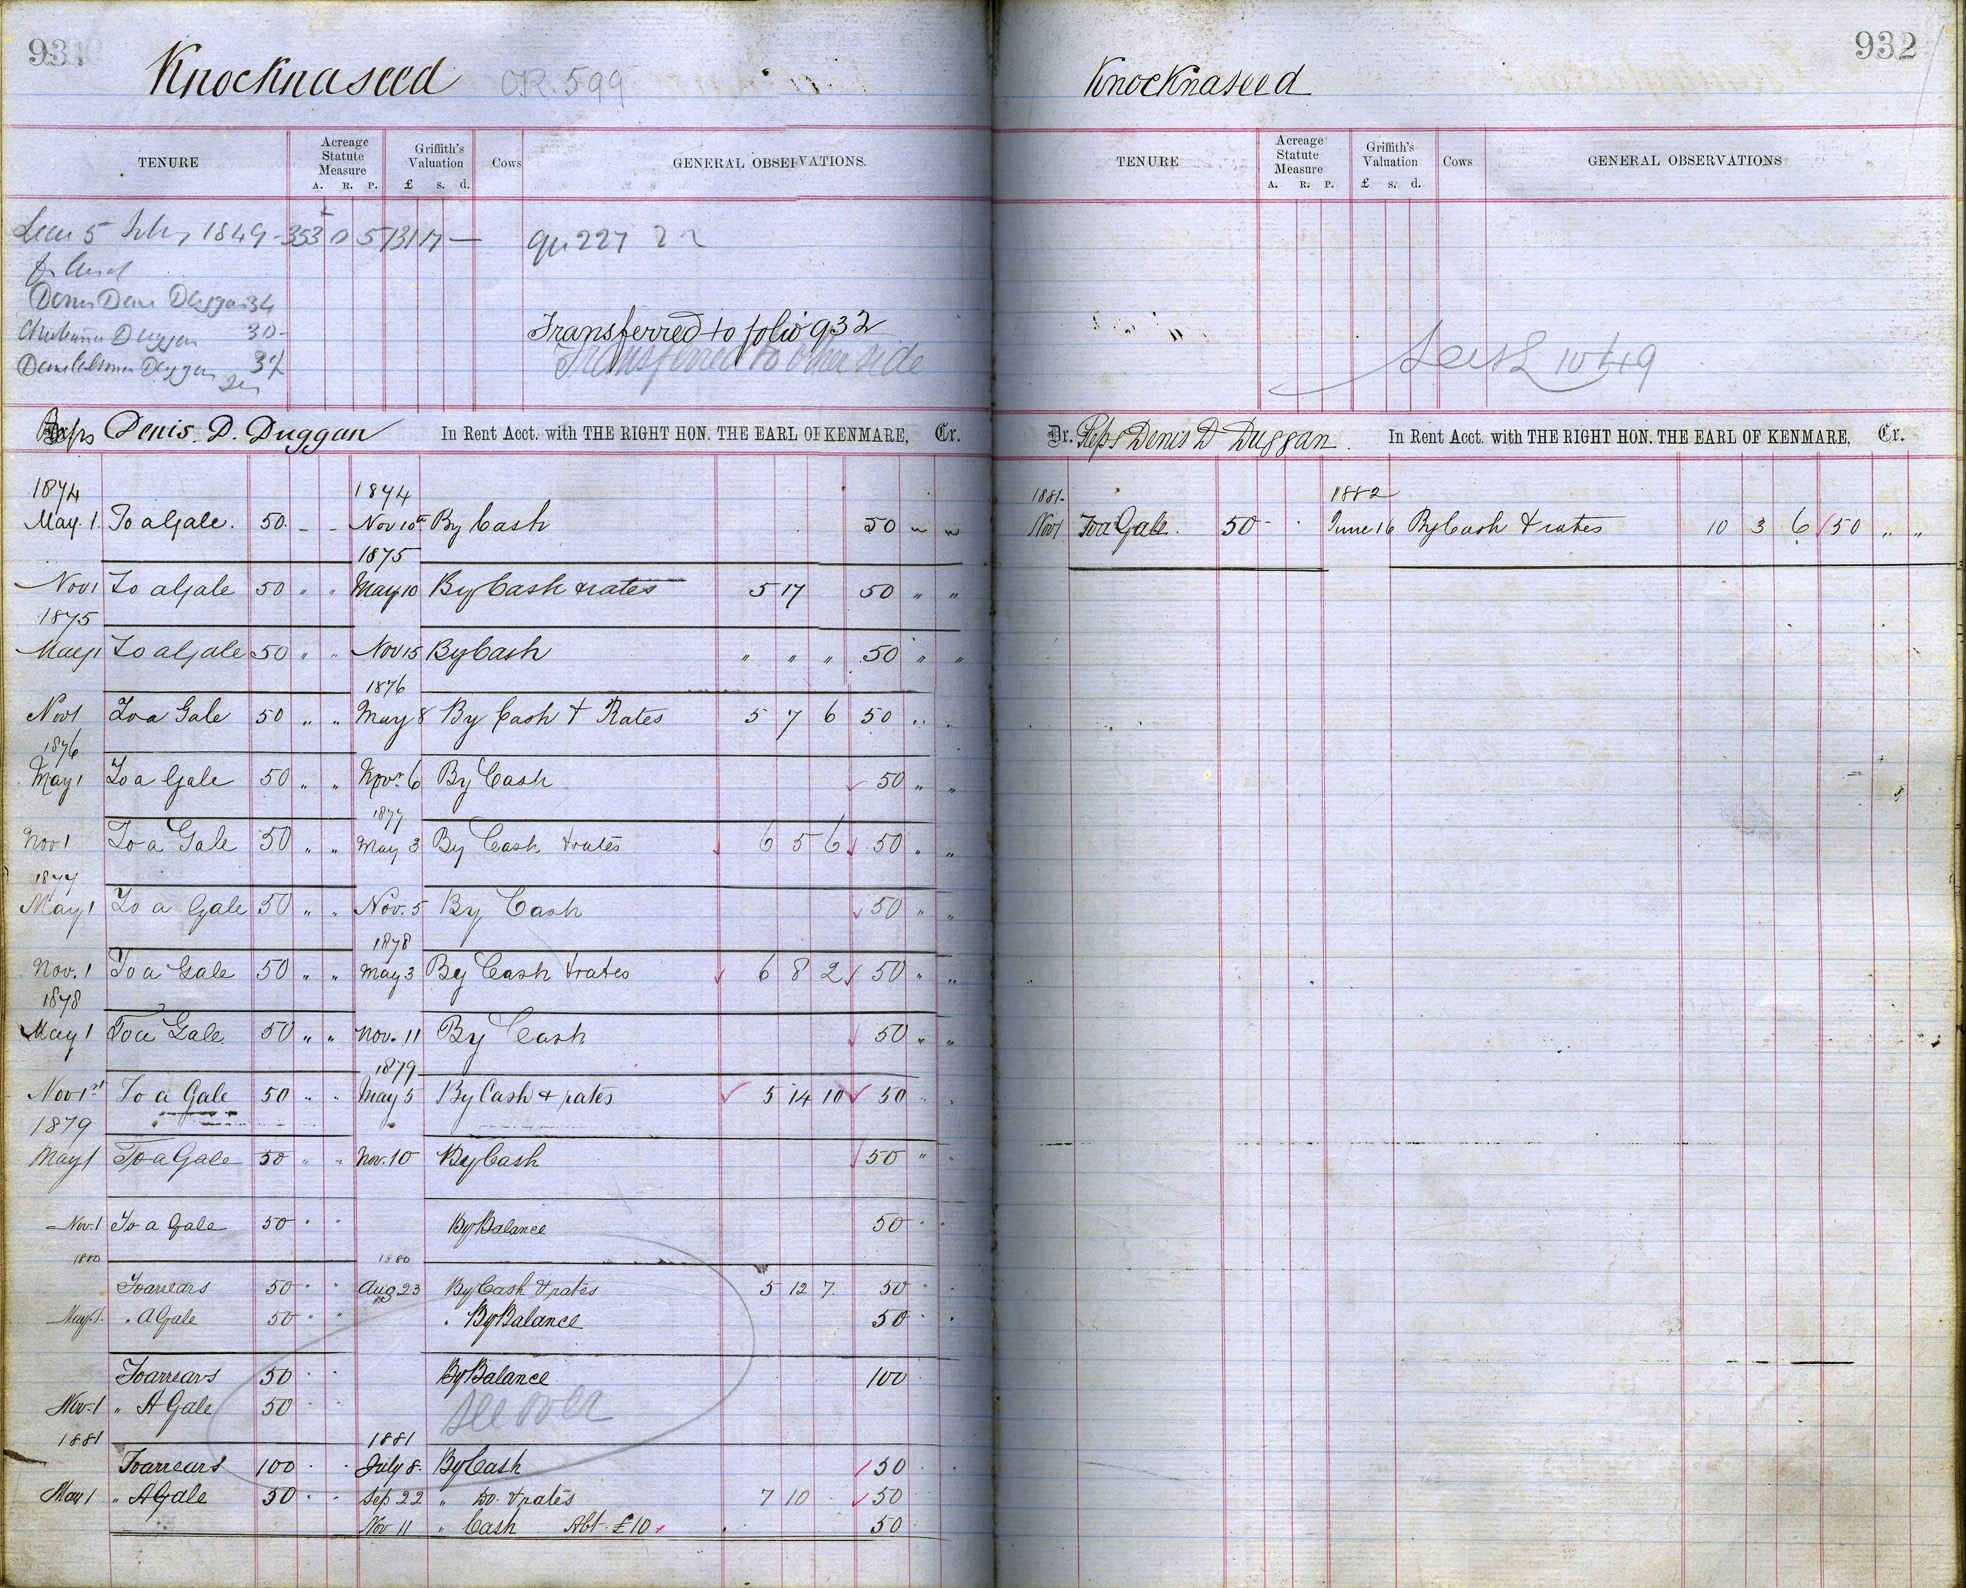 931
Knocknaseed O.R. 599
TENURE Acreage Statute Measure A. R. P. Griffith's Valuation £ s. d. Cows GENERAL OBSERVATIONS.
5 July 1849 353 0 5 131 17 —
Denis Duggan 34
Duggan 30
Duggan
Transferred to folio 932
Transferred to other side
Reps Denis. D. Duggan In Rent Acct. with THE RIGHT HON. THE EARL OF KENMARE, Cr.
1874 1874
May. 1. To a Gale. 50. - - Nov 10th By Cash 50 " "
1875
Nov 1 To a Gale 50 " " May 10 By Cash & rates 5 17 50 " "
1875
May 1 To a Gale 50 " " Nov 15 By Cash " " " 50 " "
1876
Nov 1 To a Gale 50 " " May 8 By Cash & Rates 5 7 6 50 " "
1876
May 1 To a Gale 50 " " Novr. 6 By Cash 50 " "
1877
Nov 1 To a Gale 50 " " May 3 By Cash & rates 6 5 6 50 " "
1877
May 1 To a Gale 50 " " Nov. 5 By Cash 50 " "
1878
Nov. 1 To a Gale 50 " " May 3 By Cash & rates 6 8 2 50 " "
1878
May 1 To a Gale 50 " " Nov. 11 By Cash 50 " "
1879
Nov 1st To a Gale 50 " " May 5 By Cash & rates 5 14 10 50 " "
1879
May 1 To a Gale 50 " " Nov. 10 By Cash 50 " "
Nov. 1 To a Gale 50 " " By Balance 50 " "
1880 1880
To arrears 50 " " Aug 23 By Cash & rates 5 12 7. 50 " "
May 1. " A Gale 50 " " " By Balance 50 " "
To arrears 50 " " By Balance 100
Nov. 1 " A Gale 50 " " see over
1881 1881
To arrears 100 " " July 8. By Cash 50 " "
May 1 " A Gale 50 " " Sep 22 " Do. & rates 7 10 50
Nov 11 " Cash Abt. £10 50
932
Knocknaseed
TENURE Acreage Statute Measure A. R. P. Griffith's Valuation £ s. d. Cows GENERAL OBSERVATIONS
Dr. Reps Denis D Duggan. In Rent Acct. with THE RIGHT HON. THE EARL OF KENMARE, Cr.
1881. 1882
Nov 1 To a Gale. 50 - " June 16 By Cash & rates 10 3 6 50 " "